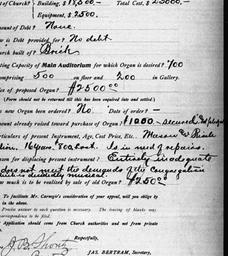 of Church? } Building, $18,500- Total Cost, $ 23000.-
Equipment, $ 2500.
ount of Debt? None.
w is Debt provided for? No debt.
urch built of? Brick
ting Capacity of Main Auditorium for which Organ is desired? 700
omprising 500 on floor and 200 in Gallery.
e of proposed Organ? $2500.00
(Form should not be returned till this has been enquired into and settled.)
s new Organ been Ordered? No. Date of order -
ount already raised toward purchase of Organ? $1000-
rticulars of present Instrument, Age, Cost Price, Etc.
16 yrs. Is in need of repairs.
son for displacing present instrument? Entirely inadequate
does not meet the demands of the congregation
is decidedly unusual.
w much is to be realized by sale of old Organ? $250.00
To facilitate Mr. Carnegie's consideration of your appeal, will you oblige by
Precise answer to each question is necessary. The leaving of blanks may
correspondence to be filed.
Application should come from Church authorities and not from private
Respectfully,
JAS. BERTRAM, Secretary,